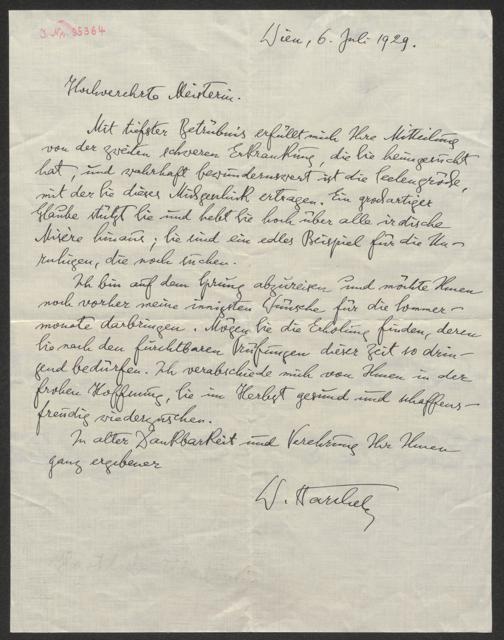 J. Nr. 35364
Wien, 6. Juli 1929.
Hochverehrte Meisterin.
Mit tiefster Betrübnis erfüllt mich Ihre Mitteilung
von der zweiten schweren Erkrankung, die Sie heimgesucht
hat, und wahrhaft bewundernswert ist die Seelengröße,
mit der Sie dieses Mißgeschick ertragen. Ein großartiger
Glaube stützt Sie und hebt Sie hoch über alle irdische
Misère hinaus; Sie sind ein edles Beispiel für die Un-
ruhigen, die noch suchen.
Ich bin auf dem Sprung abzureisen und möchte Ihnen
noch vorher meine innigsten Wünsche für die Sommer-
monate darbringen. Mögen Sie die Erholung finden, deren
Sie nach den furchtbaren Prüfungen dieser Zeit so drin-
gend bedürfen. Ich verabschiede mich von Ihnen in der
frohen Hoffnung, Sie im Herbst gesund und schaffens-
freudig wiederzusehen.
In alter Dankbarkeit und Verehrung Ihr Ihnen
ganz ergebener
W.